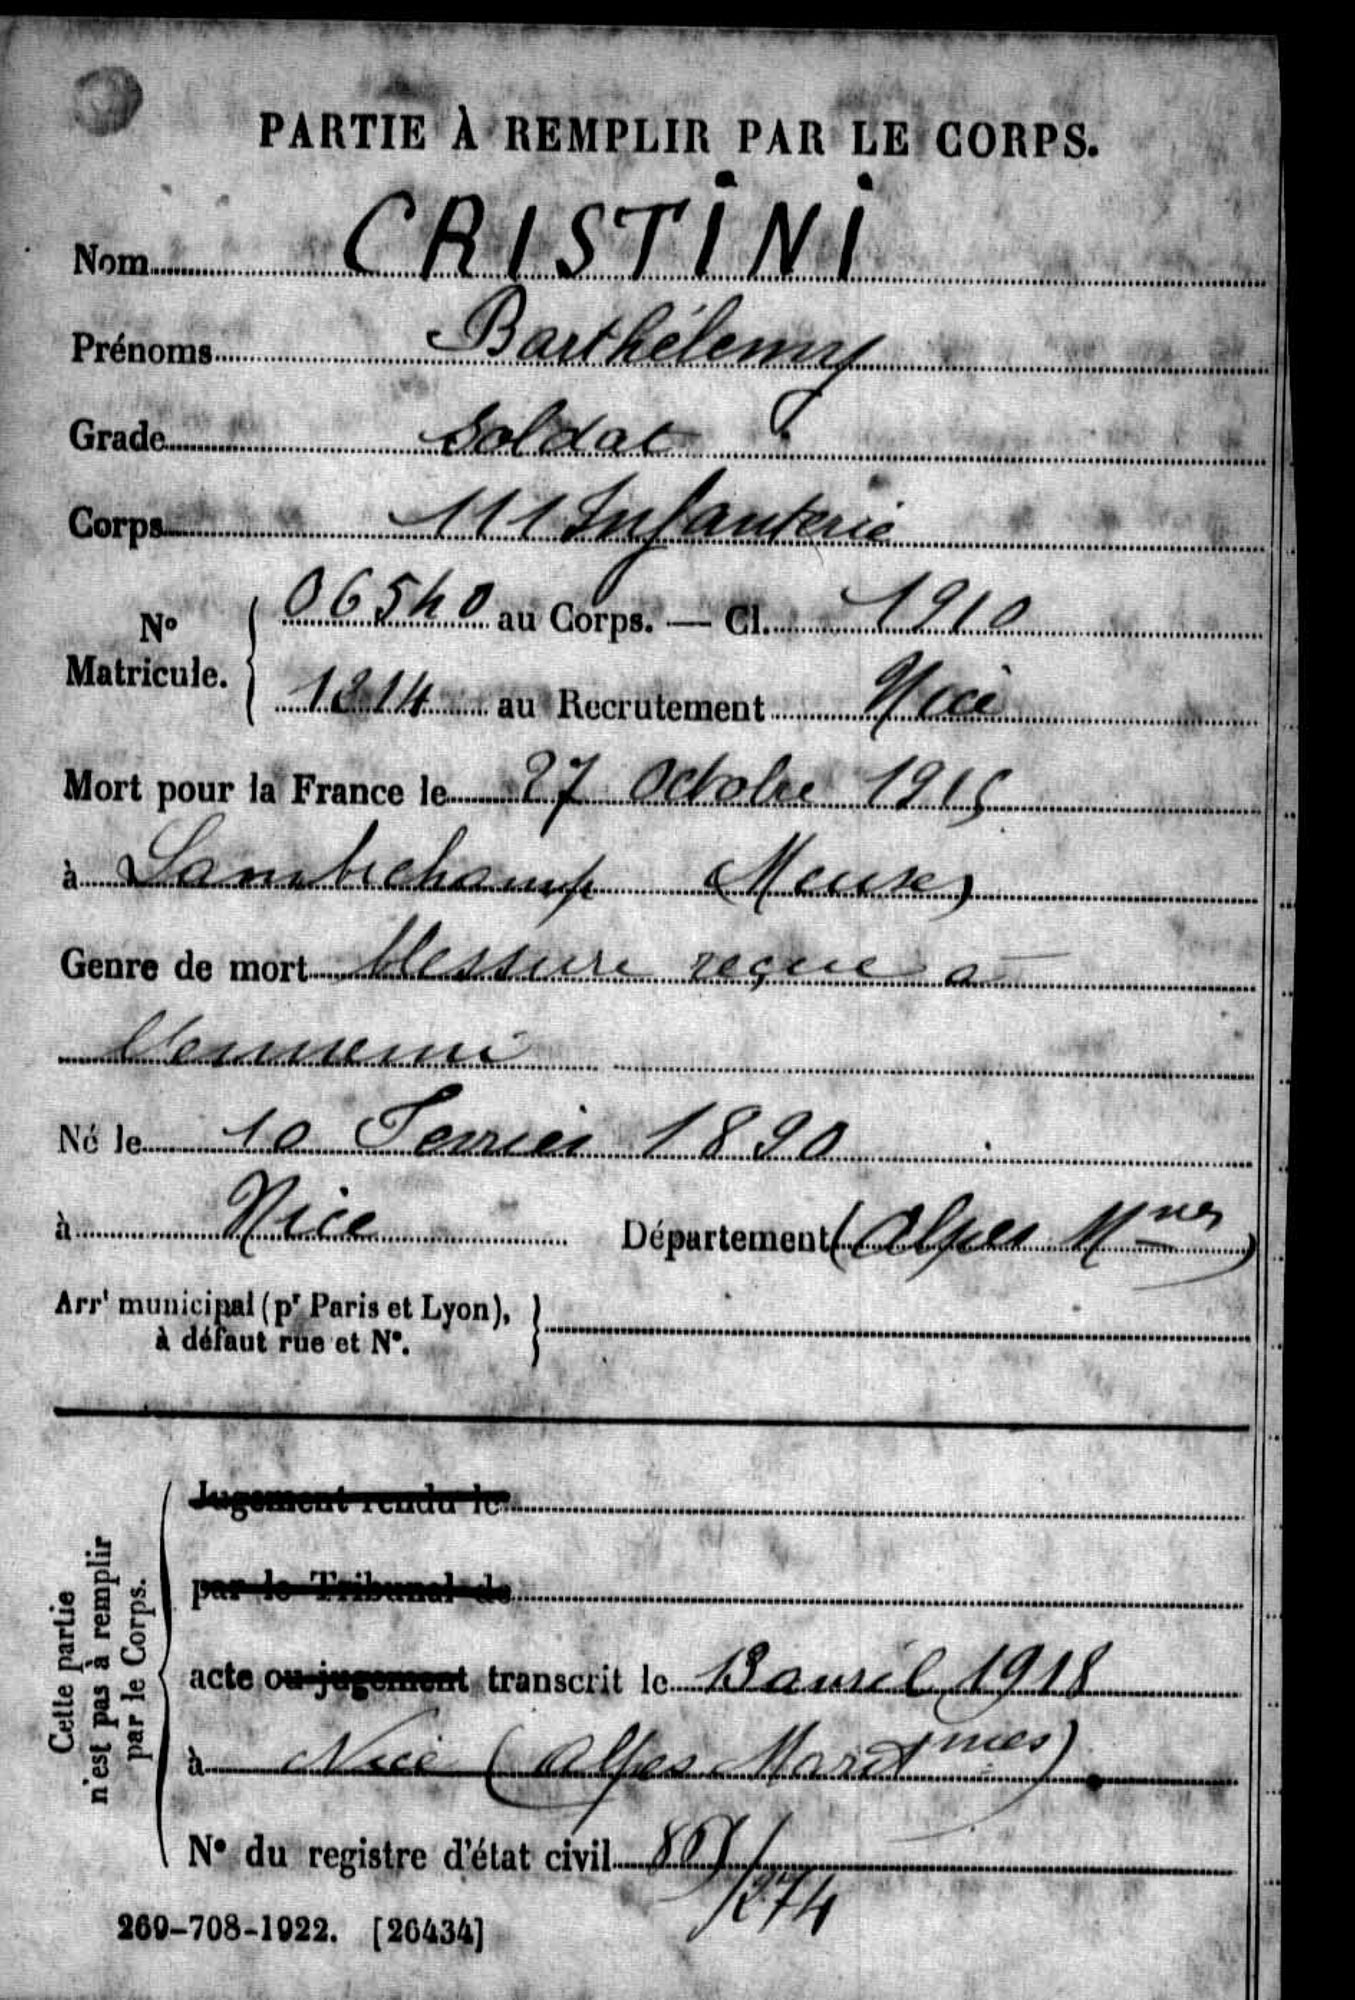 PARTIE À REMPLIR PAR LE CORPS.
Nom CRISTINI
Prénoms Barthélemy
Grade Soldat
Corps 111 Infanterie
No Matricule. 06540 au Corps. — Cl. 1910
1314 au Recrutement Nice
Mort pour la France le 27 Octobre 1915
à Lambechamp (Meuse)
Genre de mort blessure reçue à
l'ennemi
Né le 10 Fevrier 1890
à Nice Département (Alpes Mmes)
Arrt municipal (pr Paris et Lyon),
à défaut rue et N°.
Cette partie
n'est pas à remplir
par le Corps.
Jugement rendu le
par le Tribunal de
acte ou jugement transcrit le 13 avril 1918
à Nice (Alpes Maritmes)
N° du registre d'état civil /274
269-708-1922. [26434]